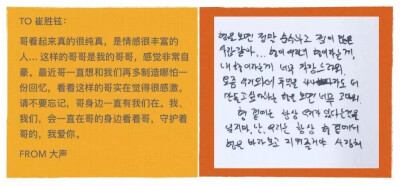 TO 崔胜铉：
哥看起来真的很纯真，是情感很丰富的
人...这样的哥哥是我的哥哥，感觉非常自
豪。最近哥一直想和我们再多制造哪怕一
份回忆，看着这样的哥实在觉得很感激。
请不要忘记，哥身边一直有我们在。我、
我们、会一直在哥的身边看着哥、守护着
哥的，我爱你。
FROM 大声
형은 보면 정말 순수하고 정이 많은
사람같아... 형이 우리의 형이라는게,
내 형이라는게 너무 자랑스러워.
요즘 우리와의 추억을 하나라도 더
만들고 싶어하는 형을 보면 너무 고마워.
형 곁에는 항상 우리가 있다는것
잊지마. 난, 우리는 항상 형 곁에서
형을 바라보고 지켜줄거야 사랑해